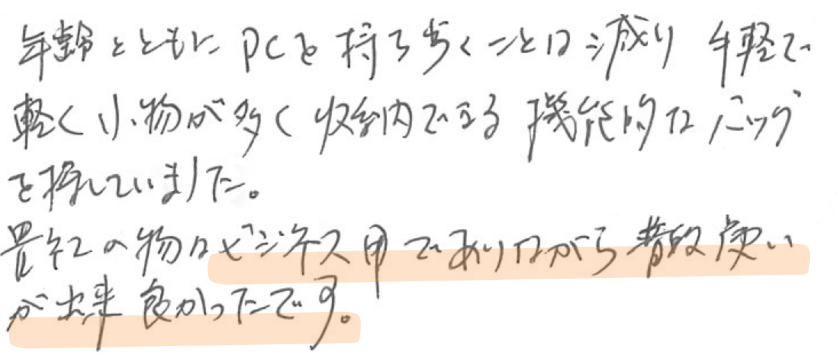 年齢とともに PCを持ち歩くことは減り 手軽で
軽く小物が多く収納できる機能的なバッグ
を探していました。
貴社の物はビジネス用でありながら普段使い
が出来良かったです。